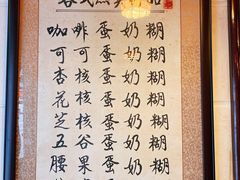 咖啡蛋奶糊
可可蛋奶糊
杏核蛋奶糊
花核蛋奶糊
芝麻蛋奶糊
五谷蛋奶糊
腰果蛋奶糊